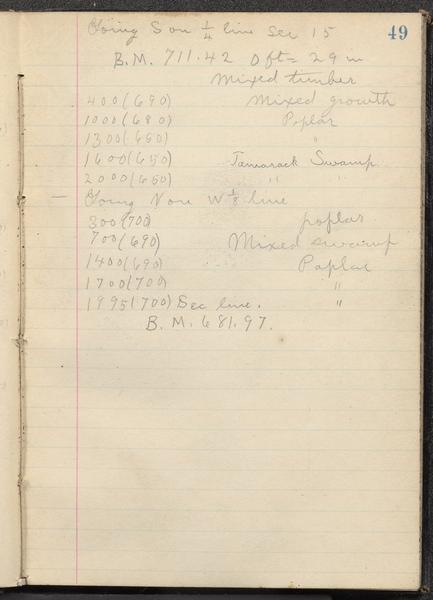 49
Going S on 1/4 line Sec 15
B.M. 711.42 0 ft = 29 in
Mixed timber
400 (690) Mixed growth
1000 (680) Poplar
1300 (650) "
1600 (650) Tamarack Swamp
2000 (650) " "
— Going N on W 1/8 line
300 (700) poplar
700 (690) Mixed swamp
1400 (690) Poplar
1700 (700) "
1995 (700) Sec line. "
B.M. 681.97.